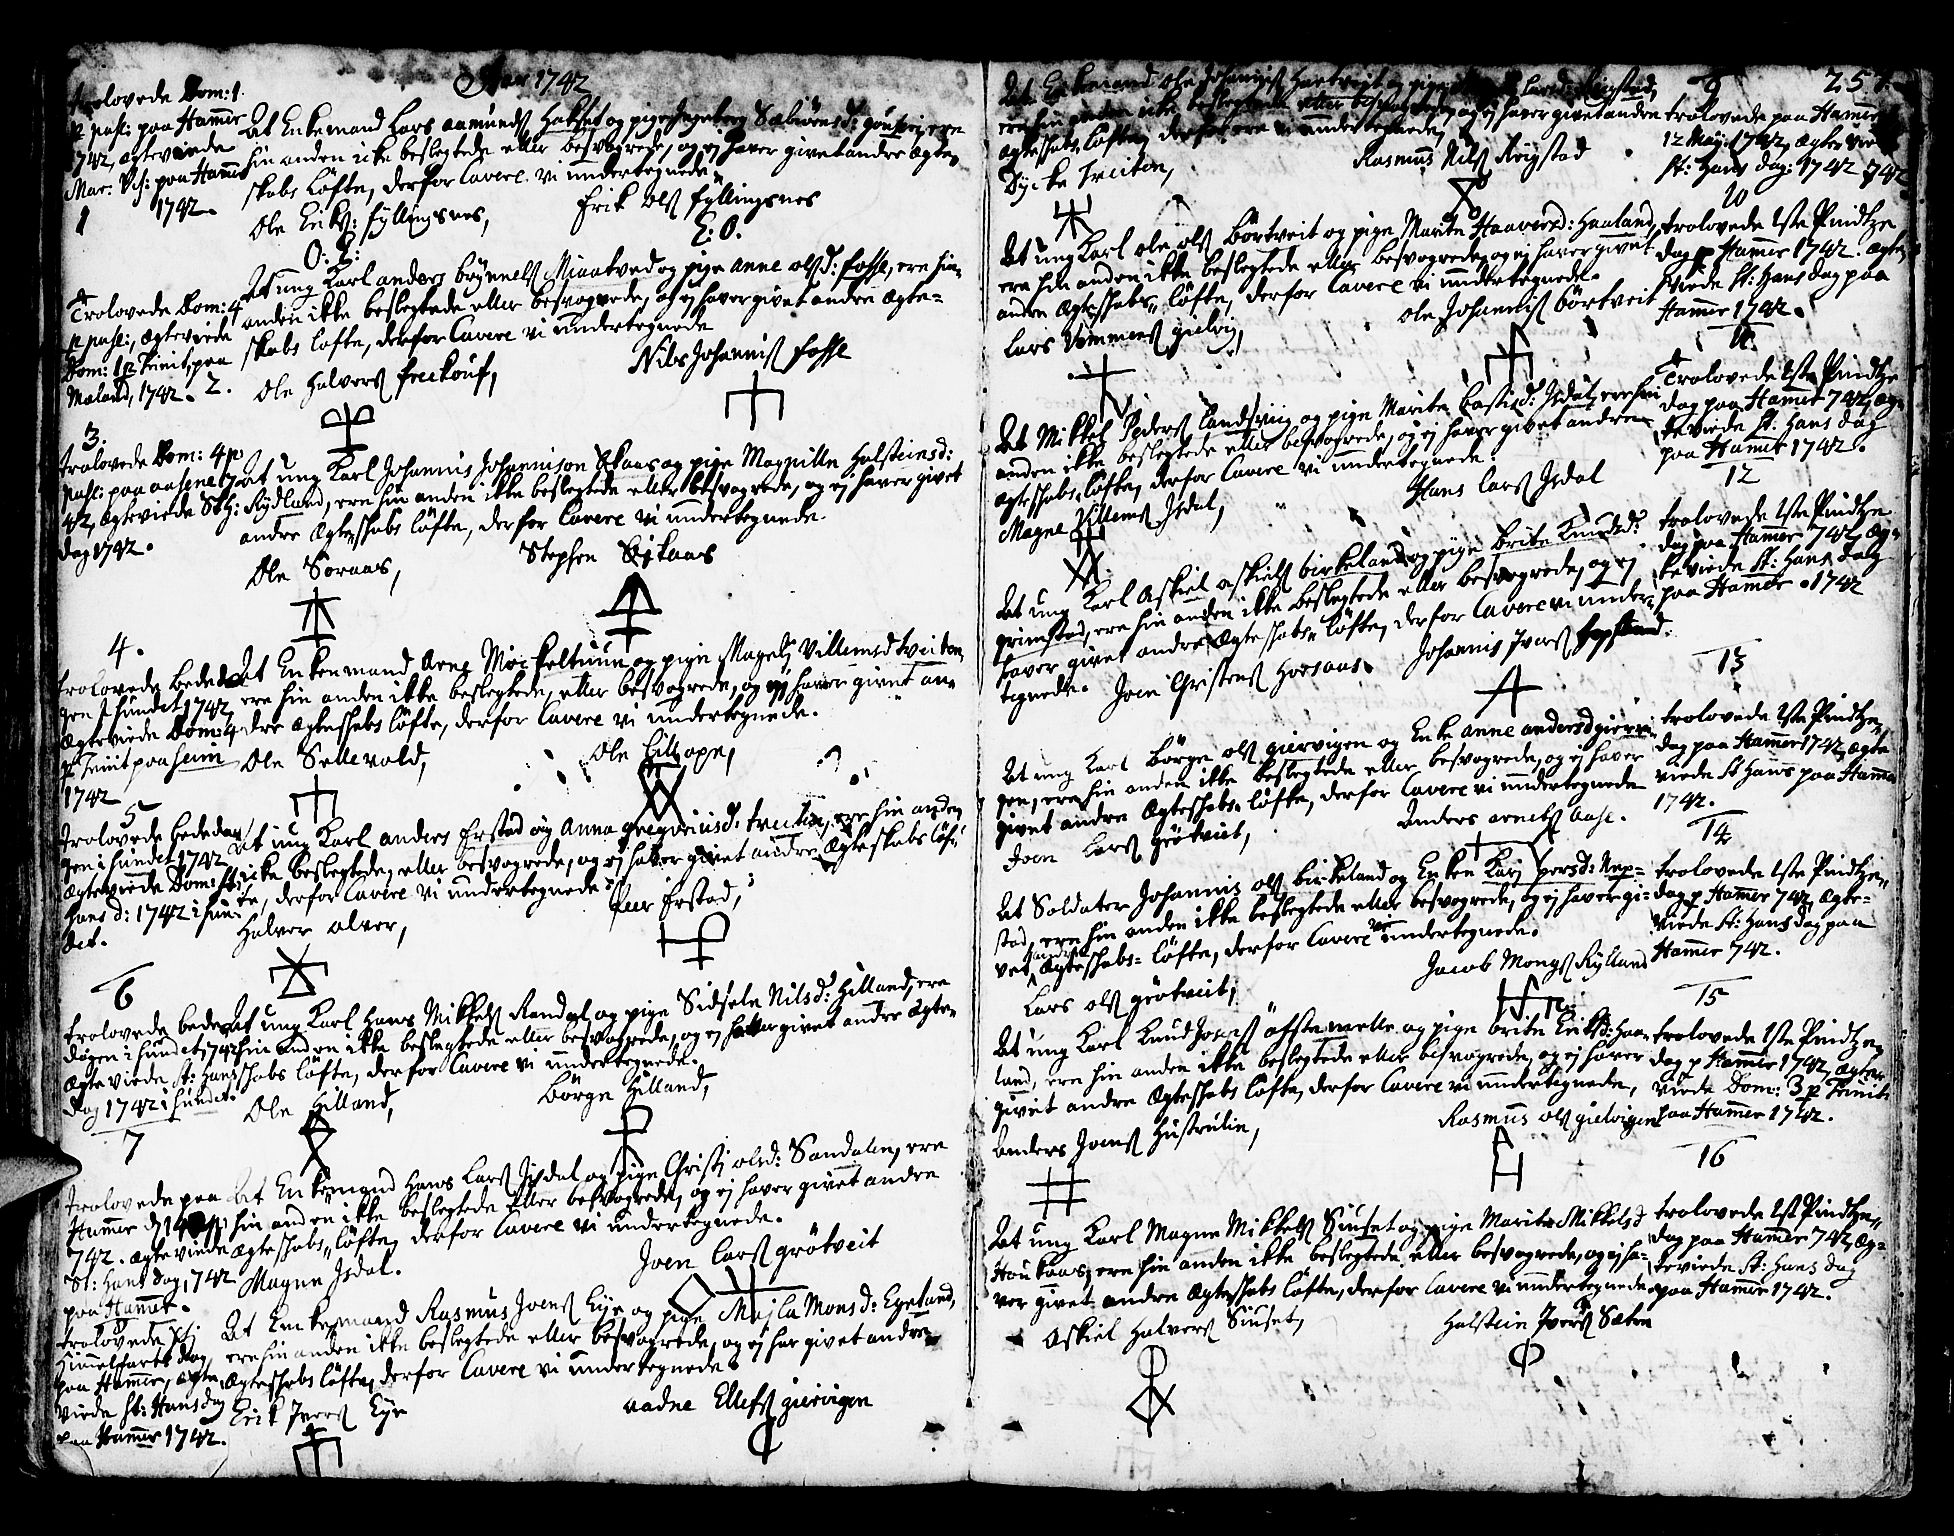 Aar 1742
trolovede Dom: 1.
p pasc: paa Hammer
742, ægteviede
Mar: Vis: paa Hammer
1742.
1
At Enkemand Lars aamunds Hakset og pige Ingeborg Sæbiörnsd: ere
hin anden icke beslegtede eller besvogrede, og ej haver givet andre Ægte-
skabs löfte, derfor Cavere vi undertegnede
Ole Eriks: fyllingsnes,
Erik Ols fyllingsnes
O: E:
E: O.
Trolovede Dom: 4
p pasc:, ægteviede
Dom: 1 p Trinit, paa
Mæland, 1742. 2.
At ung Karl anders brynnels Miaatved og pige anne olsd: fosse, ere hin
anden ikke beslegtede eller besvogrede, og ej haver givet andre Ægte=
skabs löfte, derfor Cavere vi undertegnede
Ole Halvers freekouf,
Nils Johannis fosse
3.
trolovede Dom: 4 p
pasc: paa aasene 17
42, ægteviede St: J:
dag 1742.
At ung Karl Johannis Johannison Skaar og pige Magnille Holsteinsd:
Rydland, ere hin anden ikke beslegtede eller besvogrede, og ej haver givet
andre Ægteskabs löfte, derfor Cavere vi undertegnede.
Ole Soraas,
Stephen Eikaas
4.
trolovede bededa
gen i hundet 1742,
ægteviede Dom: 4
p Trinit paa heim
1742
At Enkemand Arne Mockeltuun og pige Magelj Villemsd tveiten,
ere hin anden ikke beslegtede, eller besvogrede, og ej haver givet an-
dre Ægteskabs löfte, derfor Cavere vi undertegnede.
Ole Sellevold,
Ole Eitropn,
5
trolovede bededa
gen i hundet 1742
ægteviede Dom: St:
hans d: 1742 i hun-
det.
At ung Karl anders Erstad og Anna gregoriusd: tveiten, ere hin anden
icke beslegtede, eller besvogrede, og ej haver givet andre Ægteskabs löf-
te, derfor Cavere vi undertegnede
Halver alver,
Peer Erstad,
6
trolovede bede
dagen i hundet, 1742
Ægteviede St: Hans
dag 1742 i hundet.
At ung Karl Hans Mikkels Randal og pige Sidsele Nilsd: Hilland, ere
hin anden ikke beslegtede eller besvogrede, og ej haver givet andre Ægte-
skabs löfte, derfor Cavere vi undertegnede.
Ole Hilland,
Börge Hilland,
7
trolovede paa
Hammer
742. ægteviede
St: Hans dag, 1742
paa Hammer.
At Enkemand Hans Lars Isdal og pige Christj olsd: Sandalen, ere
hin anden ikke beslegtede eller besvogrede, og ej haver givet andre
ægteskabs löfte, derfor Cavere vi undertegnede.
Magne Isdal.
Joen Lars grötveit
8
trolovede Xsti
himmelfarts dag,
paa Hammer, ægte
viede St: Hans dag
paa Hammer 1742.
At Enkemand Rasmus Joens Eye og pige Majla Monsd: Eyeland,
ere hin anden ikke beslegtede eller besvogrede, og ej har givet andre
Ægteskabs löfte, derfor Cavere vi undertegnede
Erik Ivers Eye
aadne Ellefs giervigen
257.
At Enkemand Ole Johannis Hartveit og pige Larsd: Reigstad,
ere hin anden ikke beslegtede eller besvogrede, og ej haver givet andre
Ægteskabs löfte, derfor ere vi undertegnede,
Sycke tveiten,
Rasmus Nils Reigstad
9
trolovede paa Hammer
12 Maij: 1742, ægteviede
St: Hans dag: 1742
At ung Karl ole ols Börtveit og pige Marite Haaversd: Haaland,
ere hin anden ikke beslegtede eller besvogrede, og ej haver givet
andre Ægteskabs löfte, derfor Cavere vi undertegnede.
Lars Vemmens gielvig,
Ole Johannis Börtveit
10
trolovede 1ste Pindtze
dag p Hammer 1742. ægte-
viede St: Hans dag paa
Hammer 1742.
At Mikkel Peders Landsviig og pige Marite Lastesd: Isdal, ere hin
anden ikke beslegtede eller besvogrede, og ej haver givet andre
Ægteskabs löfte, derfor Cavere vi undertegnede.
Magne Villems Isdal,
Hans Lars Isdal
11
Trolovede 1ste Pindtze
dag paa Hammer 742, Æg-
teviede St: Hans dag
paa Hammer 1742.
At ung Karl Askiel askiels birkeland og pige brite Knudsd:
grimstad, ere hin anden ikke beslegtede eller besvogrede, og ej
haver givet andre Ægteskabs löfte, derfor Cavere vi under-
tegnede.
Joen Christens Horsaas.
Johannis Ivers hopsland.
12
trolovede 1ste Pindtze
dag paa Hammer 742, Æg-
teviede St: Hans dag
paa Hammer 1742
At ung Karl Börge ols giervigen og Enke anne andersd giervi-
gen, ere hin anden ikke beslegtede eller besvogrede, og ej haver
givet andre Ægteskabs löfte, derfor Cavere vi undertegnede
Joen Lars grötveit,
Anders arnets Aase.
13
trolovede 1ste Pindtze
dag paa Hammer 1742, ægte
viede St Hans paa Hammer
1742.
At Soldater Johannis ols birkeland og Enken Karj persd: Rep-
stad, ere hin anden ikke beslegtede eller besvogrede, og ej haver gi-
vet andre Ægteskabs löfte, derfor Cavere vi undertegnede.
Lars ols grötveit,
Jacob Mongs Rylland
14
trolovede 1ste Pindtze
dag p Hammer 742, Ægte-
viede St: Hans dag paa
Hammer 742.
At ung Karl Knud Joens öfstemelle og pige brite Eriksd: Haa-
land, ere hin anden ikke beslegtede eller besvogrede, og ej haver
givet andre Ægteskabs löfte, derfor Cavere vi undertegnede,
Anders Joens Hustrulie,
Rasmus ols gielvigen
15
trolovede 1ste Pindtze
dag p Hammer 1742, ægte
viede Dom: 3 p Trinit
paa Hammer 1742.
At ung Karl Magne Mikkels Siuset og pige Marite Mikkelsd
Houkaas, ere hin anden ikke beslegtede eller besvogrede, og ej ha-
ver givet andre Ægteskabs löfte, derfor Cavere vi undertegnede
Askiel Halvers Siuset,
Halstein Ivers Sæten
16
trolovede 1st Pindtze
dag paa Hammer 742, Æg-
teviede St: Hans dag
paa Hammer 1742.